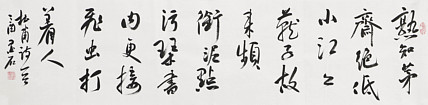 熟知茅
齋絕低
小江上
燕子故
來頻
銜泥點
污琴書
內更接
飛虫打
著人
杜甫詩一首